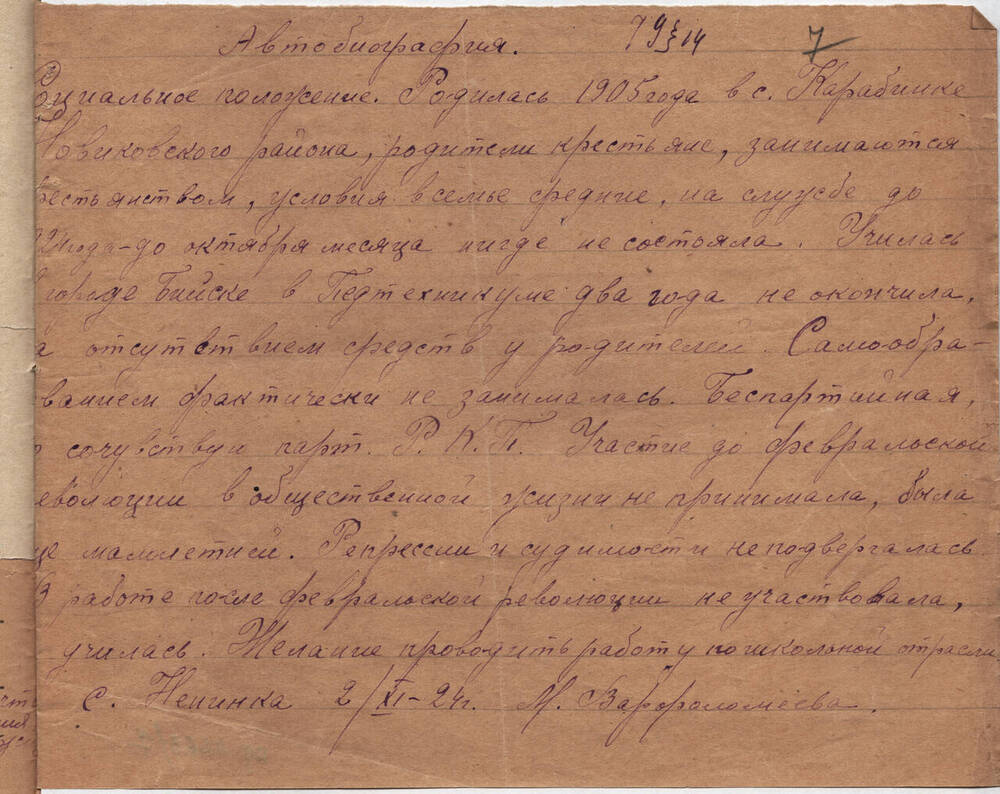 Автобиография. 7 9 § 14 7
Социальное положение. Родилась 1905 года в с. Карабинке
Новиковского района, родители крестьяне, занимаются
рестьянством, условия в семье средние, на службе до
24 года-до октября месяца нигде не состояла. Училась
в городе Бийске в Педтехникуме два года не окончила,
а отсутствием средств у родителей. Самообра-
ванием фактически не занималась. Беспартийная,
о сочувствую парт. Р.К.П. Участие до февральской
еволюции в общественной жизни не принимала, была
ще малолетней. Репрессии и судимости не подвергалась.
В работе после февральской революции не участвовала,
училась. Желание проводить работу по школьной отрасли
с. Ненинка 2/XI-24г. М. Варфоломеева.